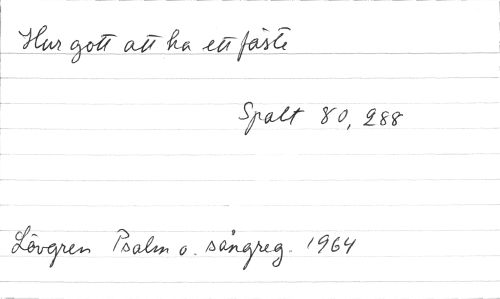 Hur gott att ha ett fäste
Spalt 80, 288
Lövgren Psalm o. sångreg. 1964